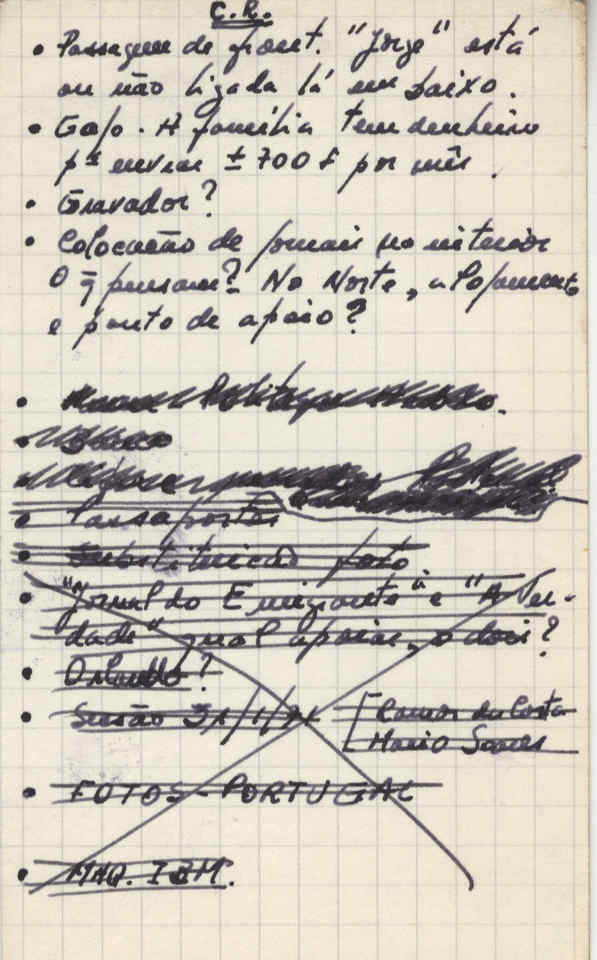 C.R.
• Passagem de front. "Jorge" está
ou não ligada lá em baixo.
• Gajo. A família tem denheiro
pª enviar ± 700 F por mês.
• Gravador?
• Colocação de jornais no interior
O q̃ pensam? No Norte, alojamento
e ponto de apoio?
• Passaportes
• Substituição foto
• "Jornal do Emigrante" e "A Ver-
dade" qual apoiar, os dois?
• Orlando?
• Sessão 31/1/ [ Ramos da Costa
Mario Soares
• FOTOS - PORTUGAL
• MAQ. IBM.